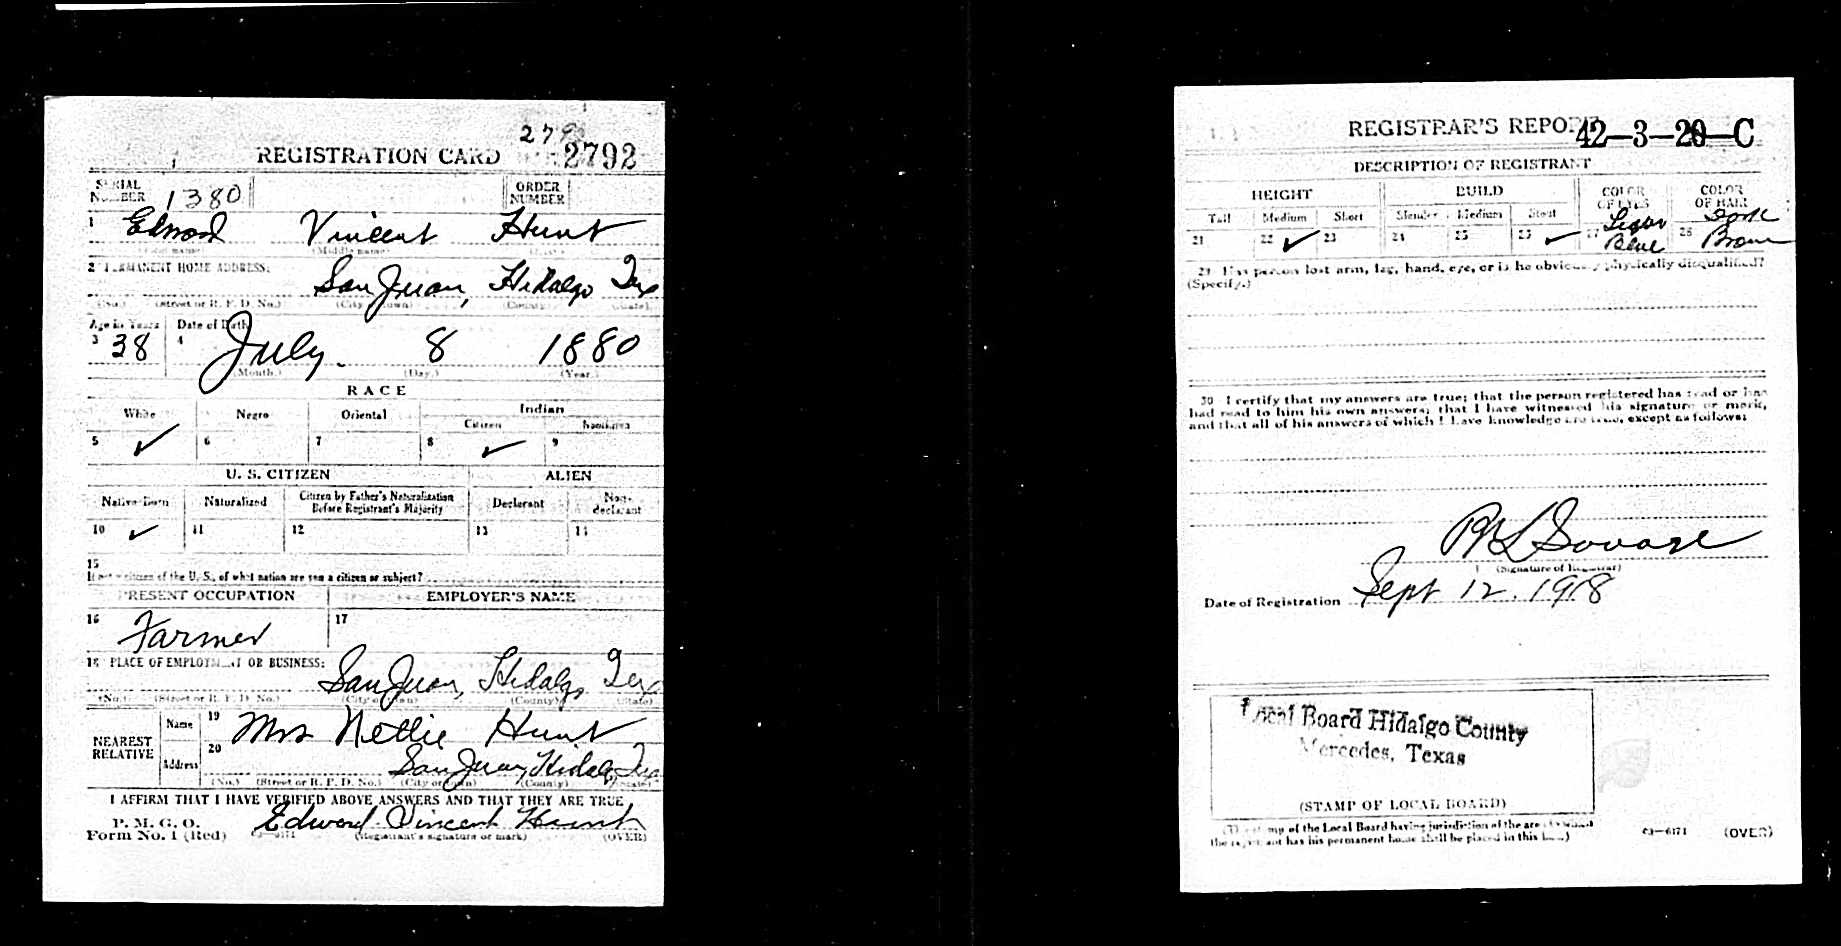 279
REGISTRATION CARD 2792
SERIAL NUMBER 1380 ORDER NUMBER
1 Edward Vincent Hunt
(First name) (Middle name)
2 PERMANENT HOME ADDRESS:
San Juan, Hidalgo Tex
(No.) (Street or R. F. D. No.) (City or town) (County) (State)
Age in Years Date of Birth
3 38 4 July 8 1880
(Month.) (Day.) (Year.)
RACE
White Negro Oriental Indian
Citizen Noncitizen
5 ✓ 6 7 8 ✓ 9
U. S. CITIZEN ALIEN
Native Born Naturalized Citizen by Father's Naturalization Before Registrant's Majority Declarant Non-declarant
10 ✓ 11 12 13 14
15
If not a citizen of the U. S., of what nation are you a citizen or subject?
PRESENT OCCUPATION EMPLOYER'S NAME
16 Farmer 17
18 PLACE OF EMPLOYMENT OR BUSINESS:
San Juan, Hidalgo Tex
(No.) (Street or R. F. D. No.) (City or town) (County) (State)
NEAREST RELATIVE Name 19 Mrs Nettie Hunt
Address 20 San Juan, Hidalgo, Tex
(No.) (Street or R. F. D. No.) (City or town) (County) (State)
I AFFIRM THAT I HAVE VERIFIED ABOVE ANSWERS AND THAT THEY ARE TRUE
P. M. G. O.
Form No. 1 (Red) 03—6171 Edward Vincent Hunt
(Registrant's signature or mark) (OVER)
REGISTRAR'S REPORT 42—3—20—C
DESCRIPTION OF REGISTRANT
HEIGHT BUILD COLOR OF EYES COLOR OF HAIR
Tall Medium Short Slender Medium Stout
21 22 ✓ 23 24 25 26 ✓ 27 Light Blue 28 Dark Brown
29 Has person lost arm, leg, hand, eye, or is he obviously physically disqualified?
(Specify.)
30 I certify that my answers are true; that the person registered has read or has
had read to him his own answers; that I have witnessed his signature or mark,
and that all of his answers of which I have knowledge are true, except as follows:
R L Savage
(Signature of Registrar)
Date of Registration Sept 12, 1918
Local Board Hidalgo County
Mercedes, Texas
(STAMP OF LOCAL BOARD)
(The stamp of the Local Board having jurisdiction of the area in which
the registrant has his permanent home shall be placed in this box.)
03—6171 (OVER)